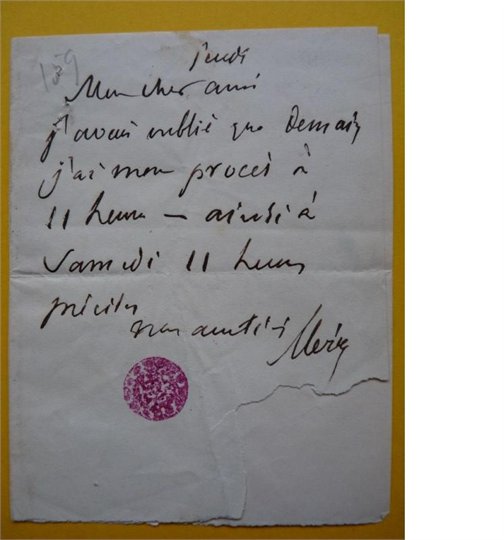 159
jeudi
Mon cher ami
j'avais oublié que demain
j'ai mon procès à
11 heures — ainsi à
Samedi 11 heures
précises
Méry